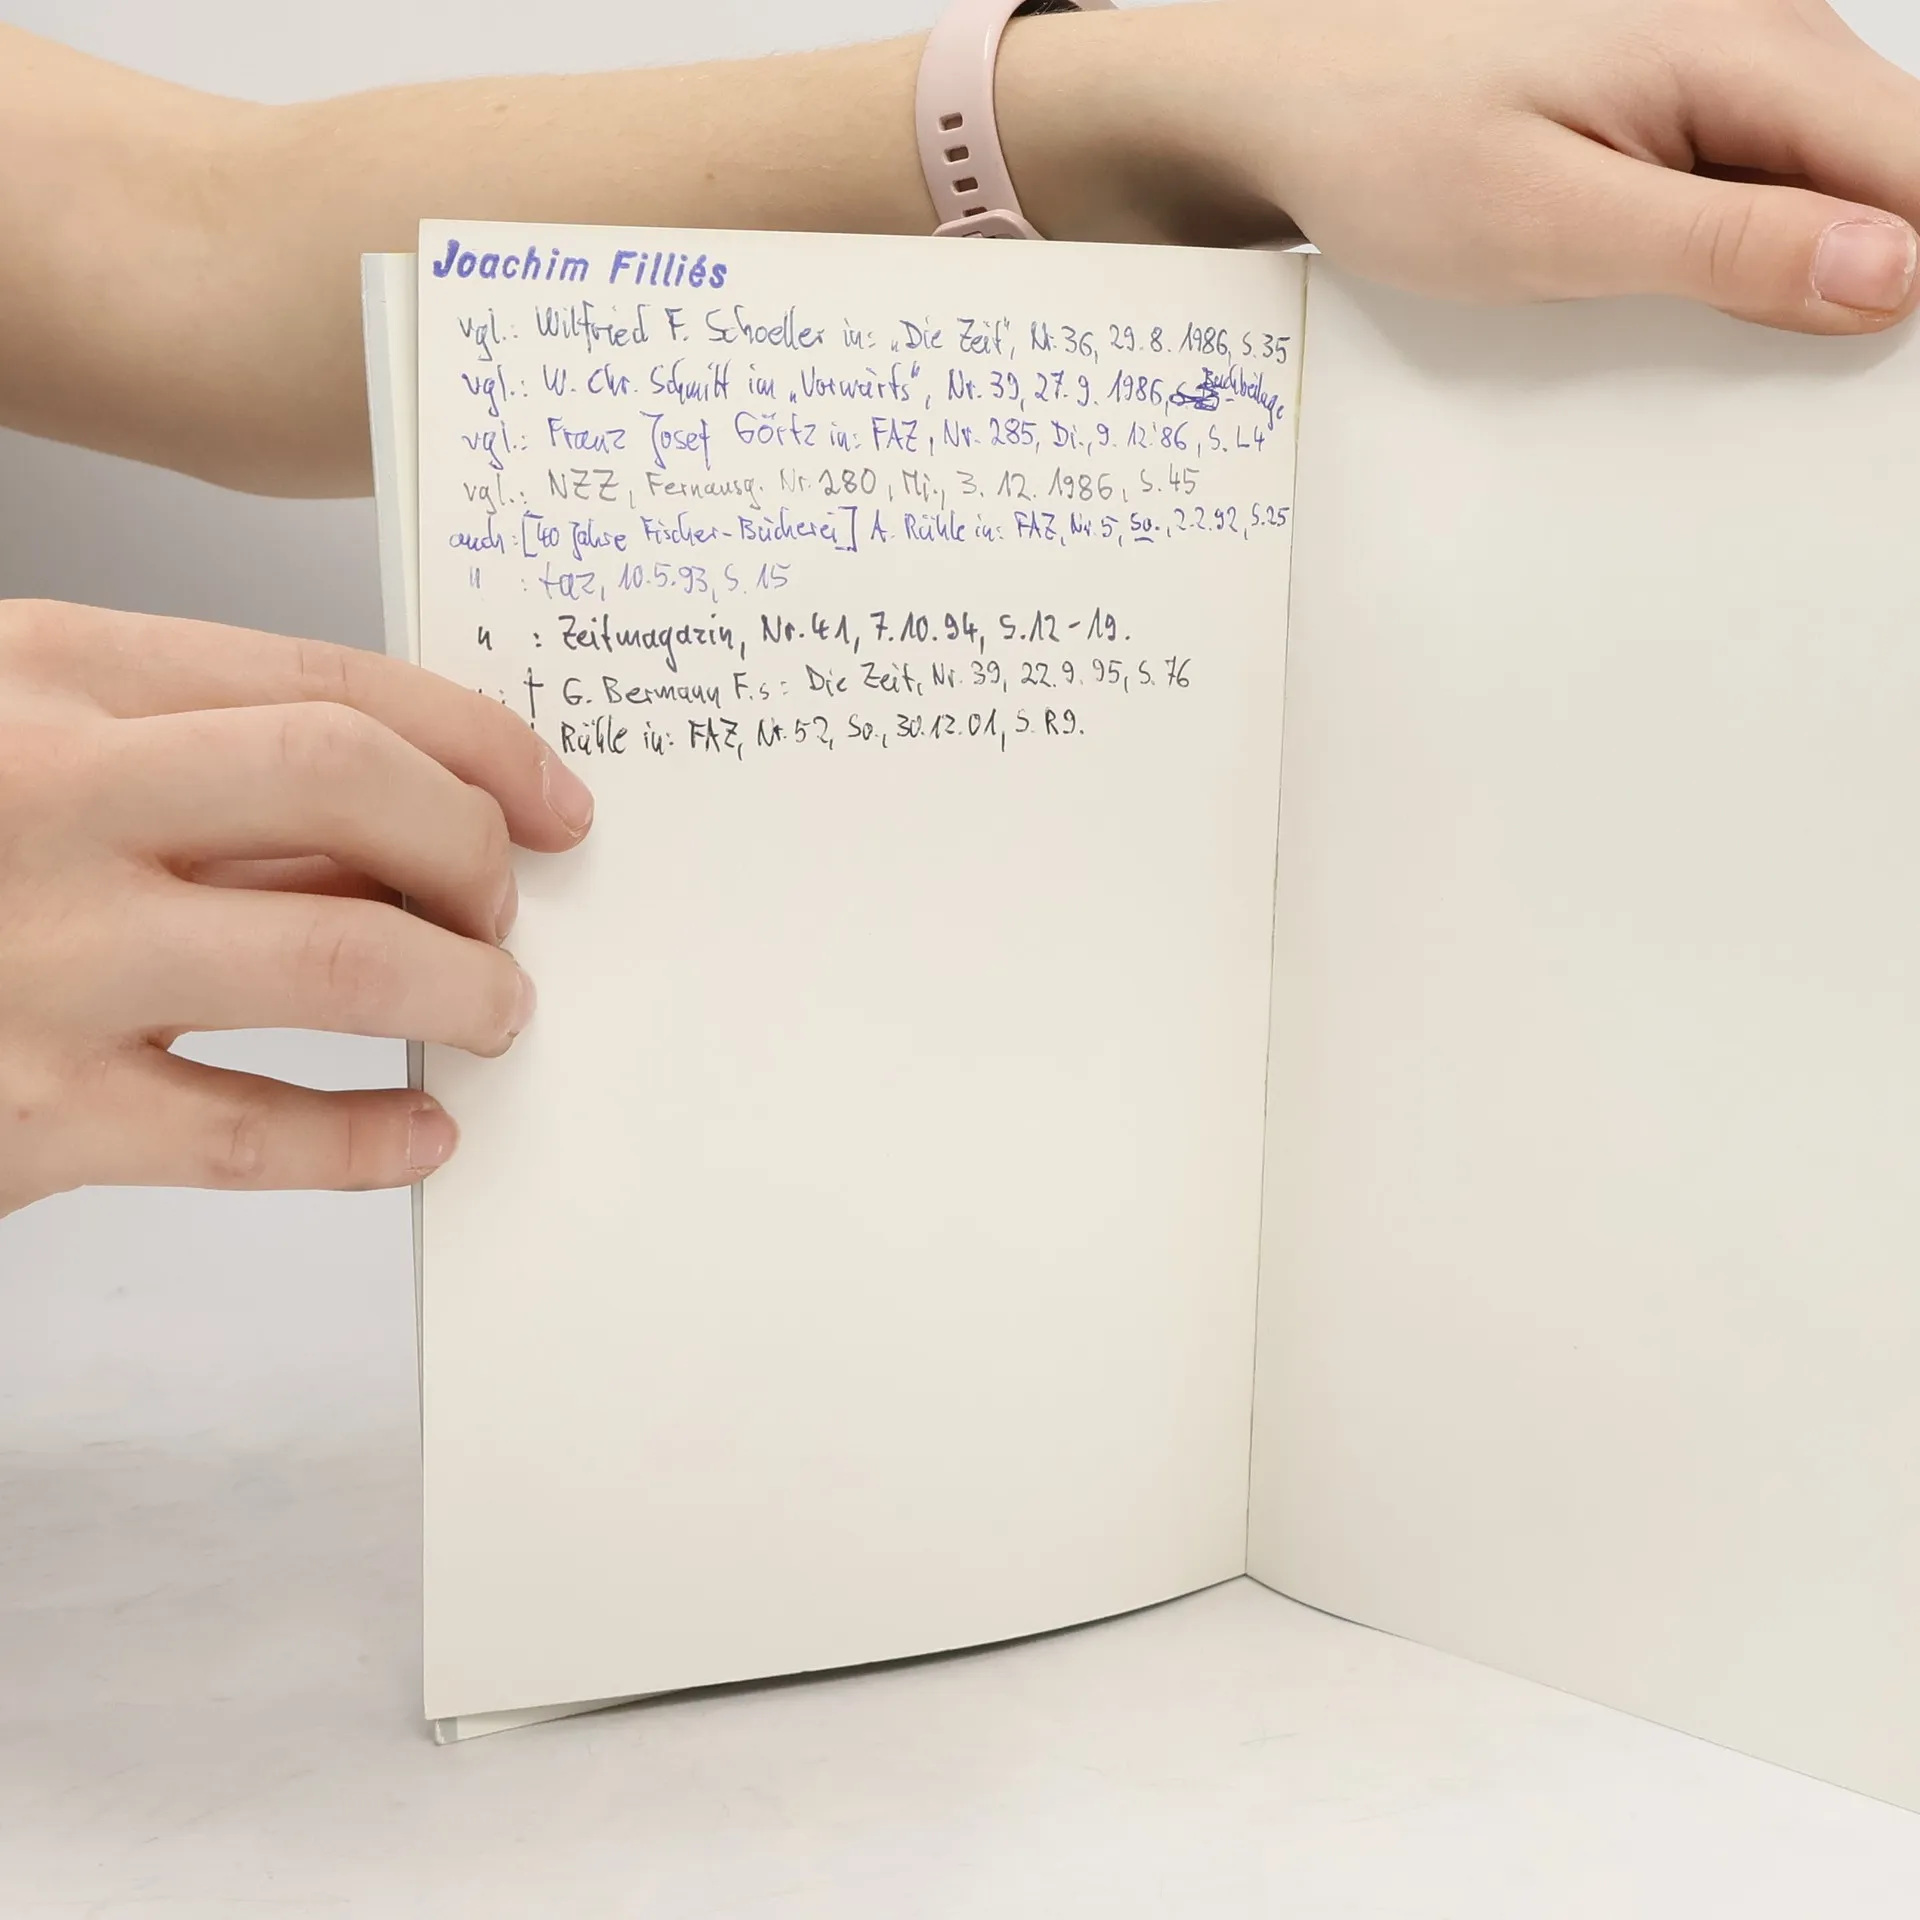 Joachim Filliés
vgl.: Wilfried F. Schoeller in: „Die Zeit", Nr. 36, 29. 8. 1986, S. 35
vgl.: W. Chr. Schmitt im „Vorwärts", Nr. 39, 27. 9. 1986, Buchbeilage
vgl.: Franz Josef Görtz in: FAZ, Nr. 285, Di., 9. 12.'86, S. L4
vgl.: NZZ, Fernausg. Nr. 280, Mi., 3. 12. 1986, S. 45
auch: [40 Jahre Fischer-Bücherei] A. Rühle in: FAZ, Nr. 5, So., 2.2.92, S. 25
" : taz, 10.5.93, S. 15
" : Zeitmagazin, Nr. 41, 7.10.94, S. 12-19.
: † G. Bermann F.s: Die Zeit, Nr. 39, 22. 9. 95, S. 76
Rühle in: FAZ, Nr. 52, So., 30.12.01, S. R9.